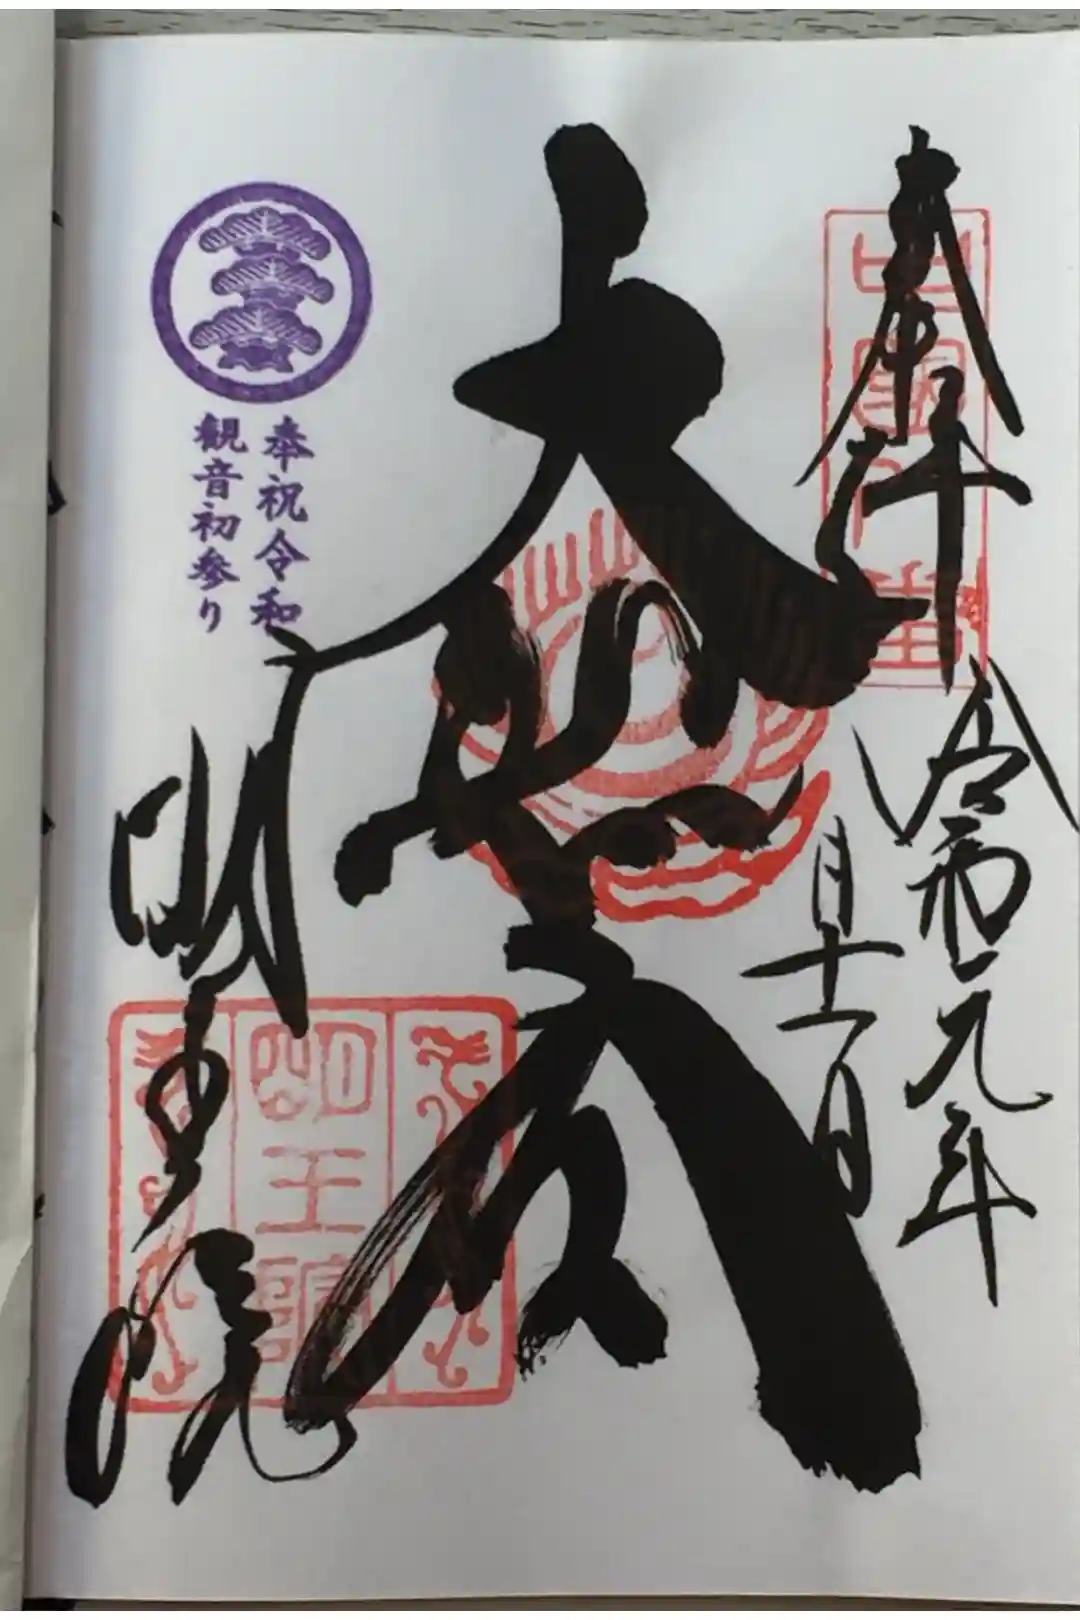 奉拝
令和元年
十一月
中国八番
大悲殿
明王院
明王院
奉祝令和
観音初参り